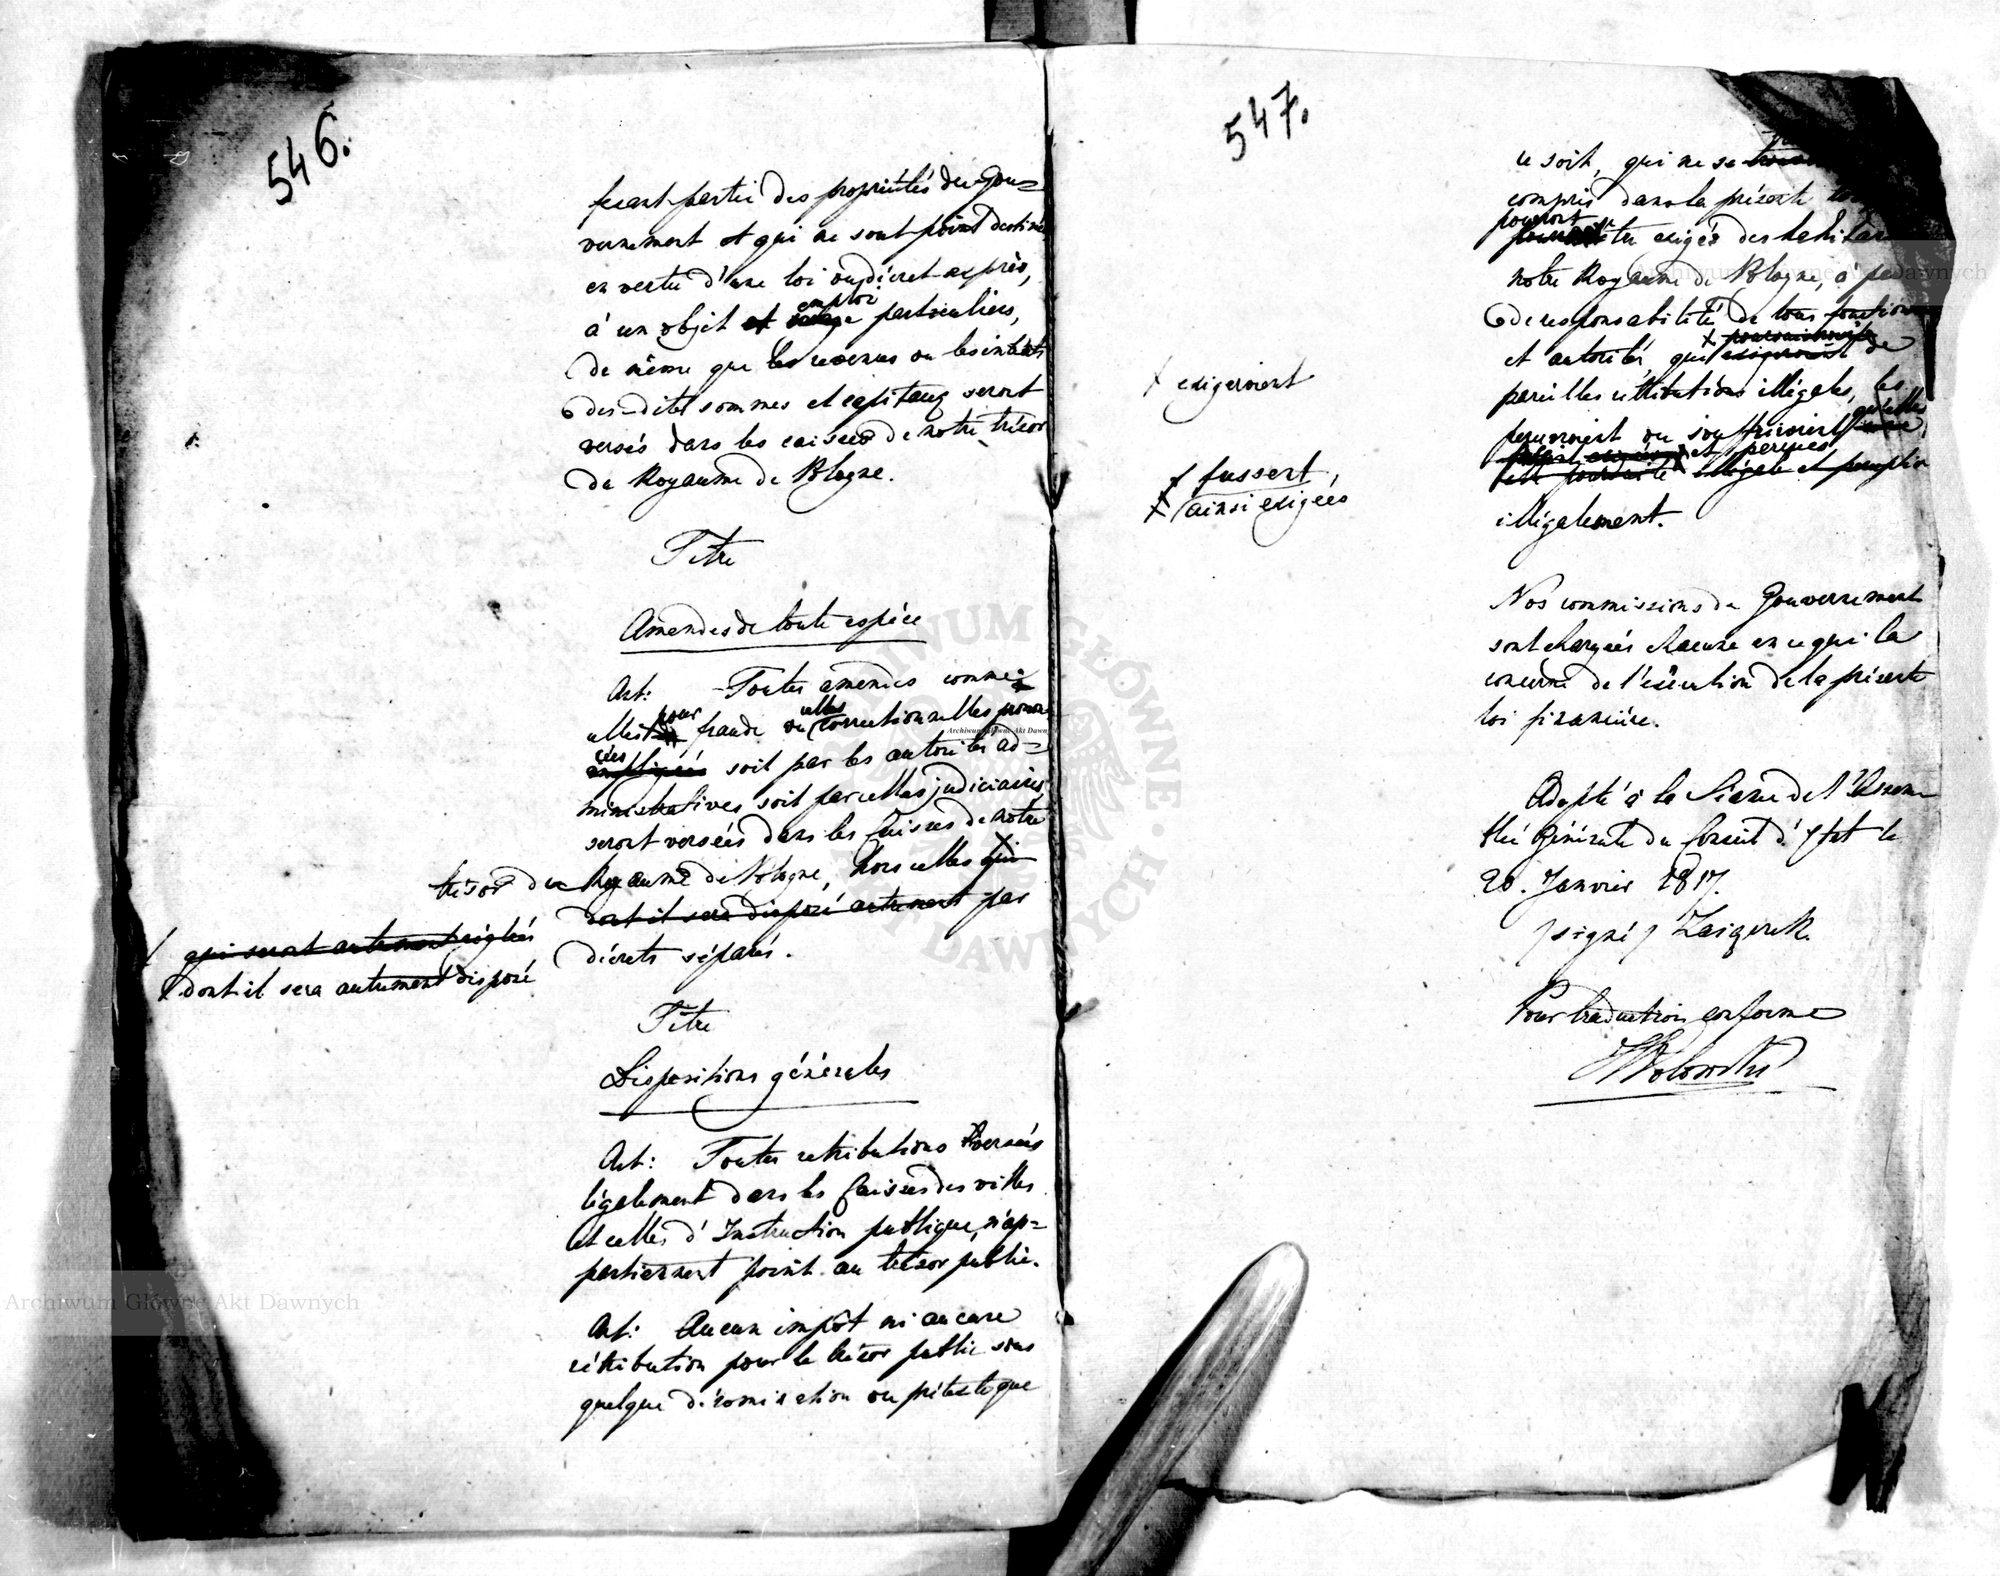 546.
fesant partie des propriétés du Gou=
vernement et qui ne sont point destinés
en vertu d'une loi ou décret exprès,
à un objet et emploi particuliers,
de même que les revenus ou les intérêts
des dites sommes et capitaux seront
versés dans les caisses de notre trésor
du Royaume de Pologne.
Titre
Amendes de toute espèce
Art: Toutes amendes comme
celles pour fraude ou celles correctionnelles pronon
cées soit par les autorités ad=
ministratives soit par celles judiciaires
seront versées dans les Caisses de notre
trésor du Royaume de Pologne, hors celles qui
dont il sera disposé autrement par
qui seront autrement réglées
dont il sera autrement disposé
décrets séparés.
Titre
Dispositions générales
Art: Toutes retributions versées
légalement dans les Caisses des villes
et celles d'Instruction publique, n'ap=
partiennent point au trésor public.
Art: Aucun impôt ni aucune
rétribution pour le trésor public sous
quelque dénomination ou prétexte que
547.
ce soit, qui ne se
compris dans la présente
pourront être exigés des habitans
notre Royaume de Pologne, à
de responsabilité de tous fonction
et autorités, qui exigeroient de
exigeroient
pareilles rétributions illégales, les
percevroient ou souffriroient qu'elles
fussent
ainsi exigées
et perçues
illégalement.
Nos commissions de Gouvernement
sont chargées chacune en ce qui la
concerne de l'exécution de la présente
loi financière.
Adopté à la Séance de l'Assem
blée Générale du Conseil d'Etat le
20. Janvier 1817.
/signé/ Zaiączek.
Pour traduction conforme
Wolowski
Archiwum Główne Akt Dawnych